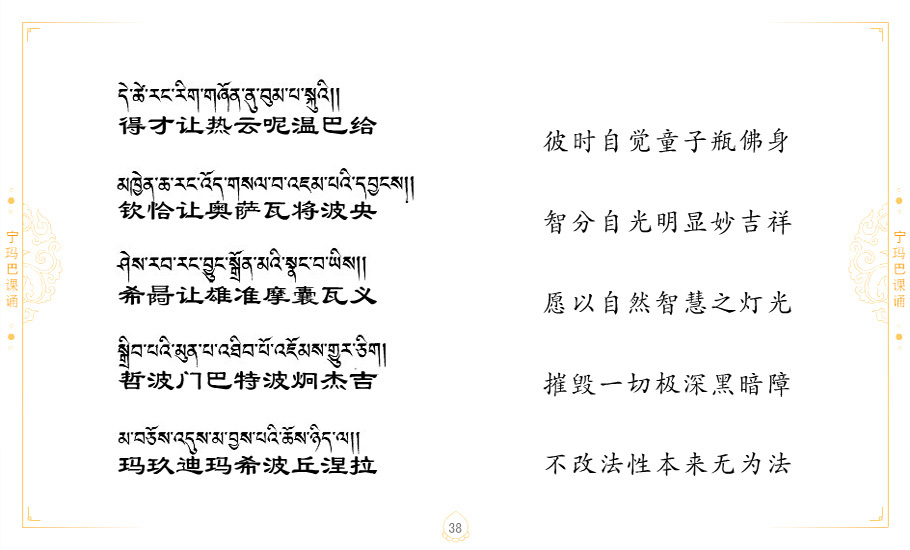 དེ་ཚེ་རང་རིག་གཞོན་ནུ་བུམ་པ་སྐུའི།།
得才让热云呢温巴给
彼时自觉童子瓶佛身
མཁྱེན་ཆ་རང་འོད་གསལ་བ་འཇམ་པའི་དབྱངས།།
钦恰让奥萨瓦将波央
智分自光明显妙吉祥
ཤེས་རབ་རང་བྱུང་སྒྲོན་མའི་སྣང་བ་ཡིས།།
希曷让雄准摩囊瓦义
愿以自然智慧之灯光
སྒྲིབ་པའི་མུན་པ་འཐིབ་པོ་འཇོམས་གྱུར་ཅིག།
哲波门巴特波炯杰吉
摧毁一切极深黑暗障
མ་བཅོས་འདུས་མ་བྱས་པའི་ཆོས་ཉིད་ལ།།
玛玖迪玛希波丘涅拉
不改法性本来无为法
宁玛巴课诵
宁玛巴课诵
38